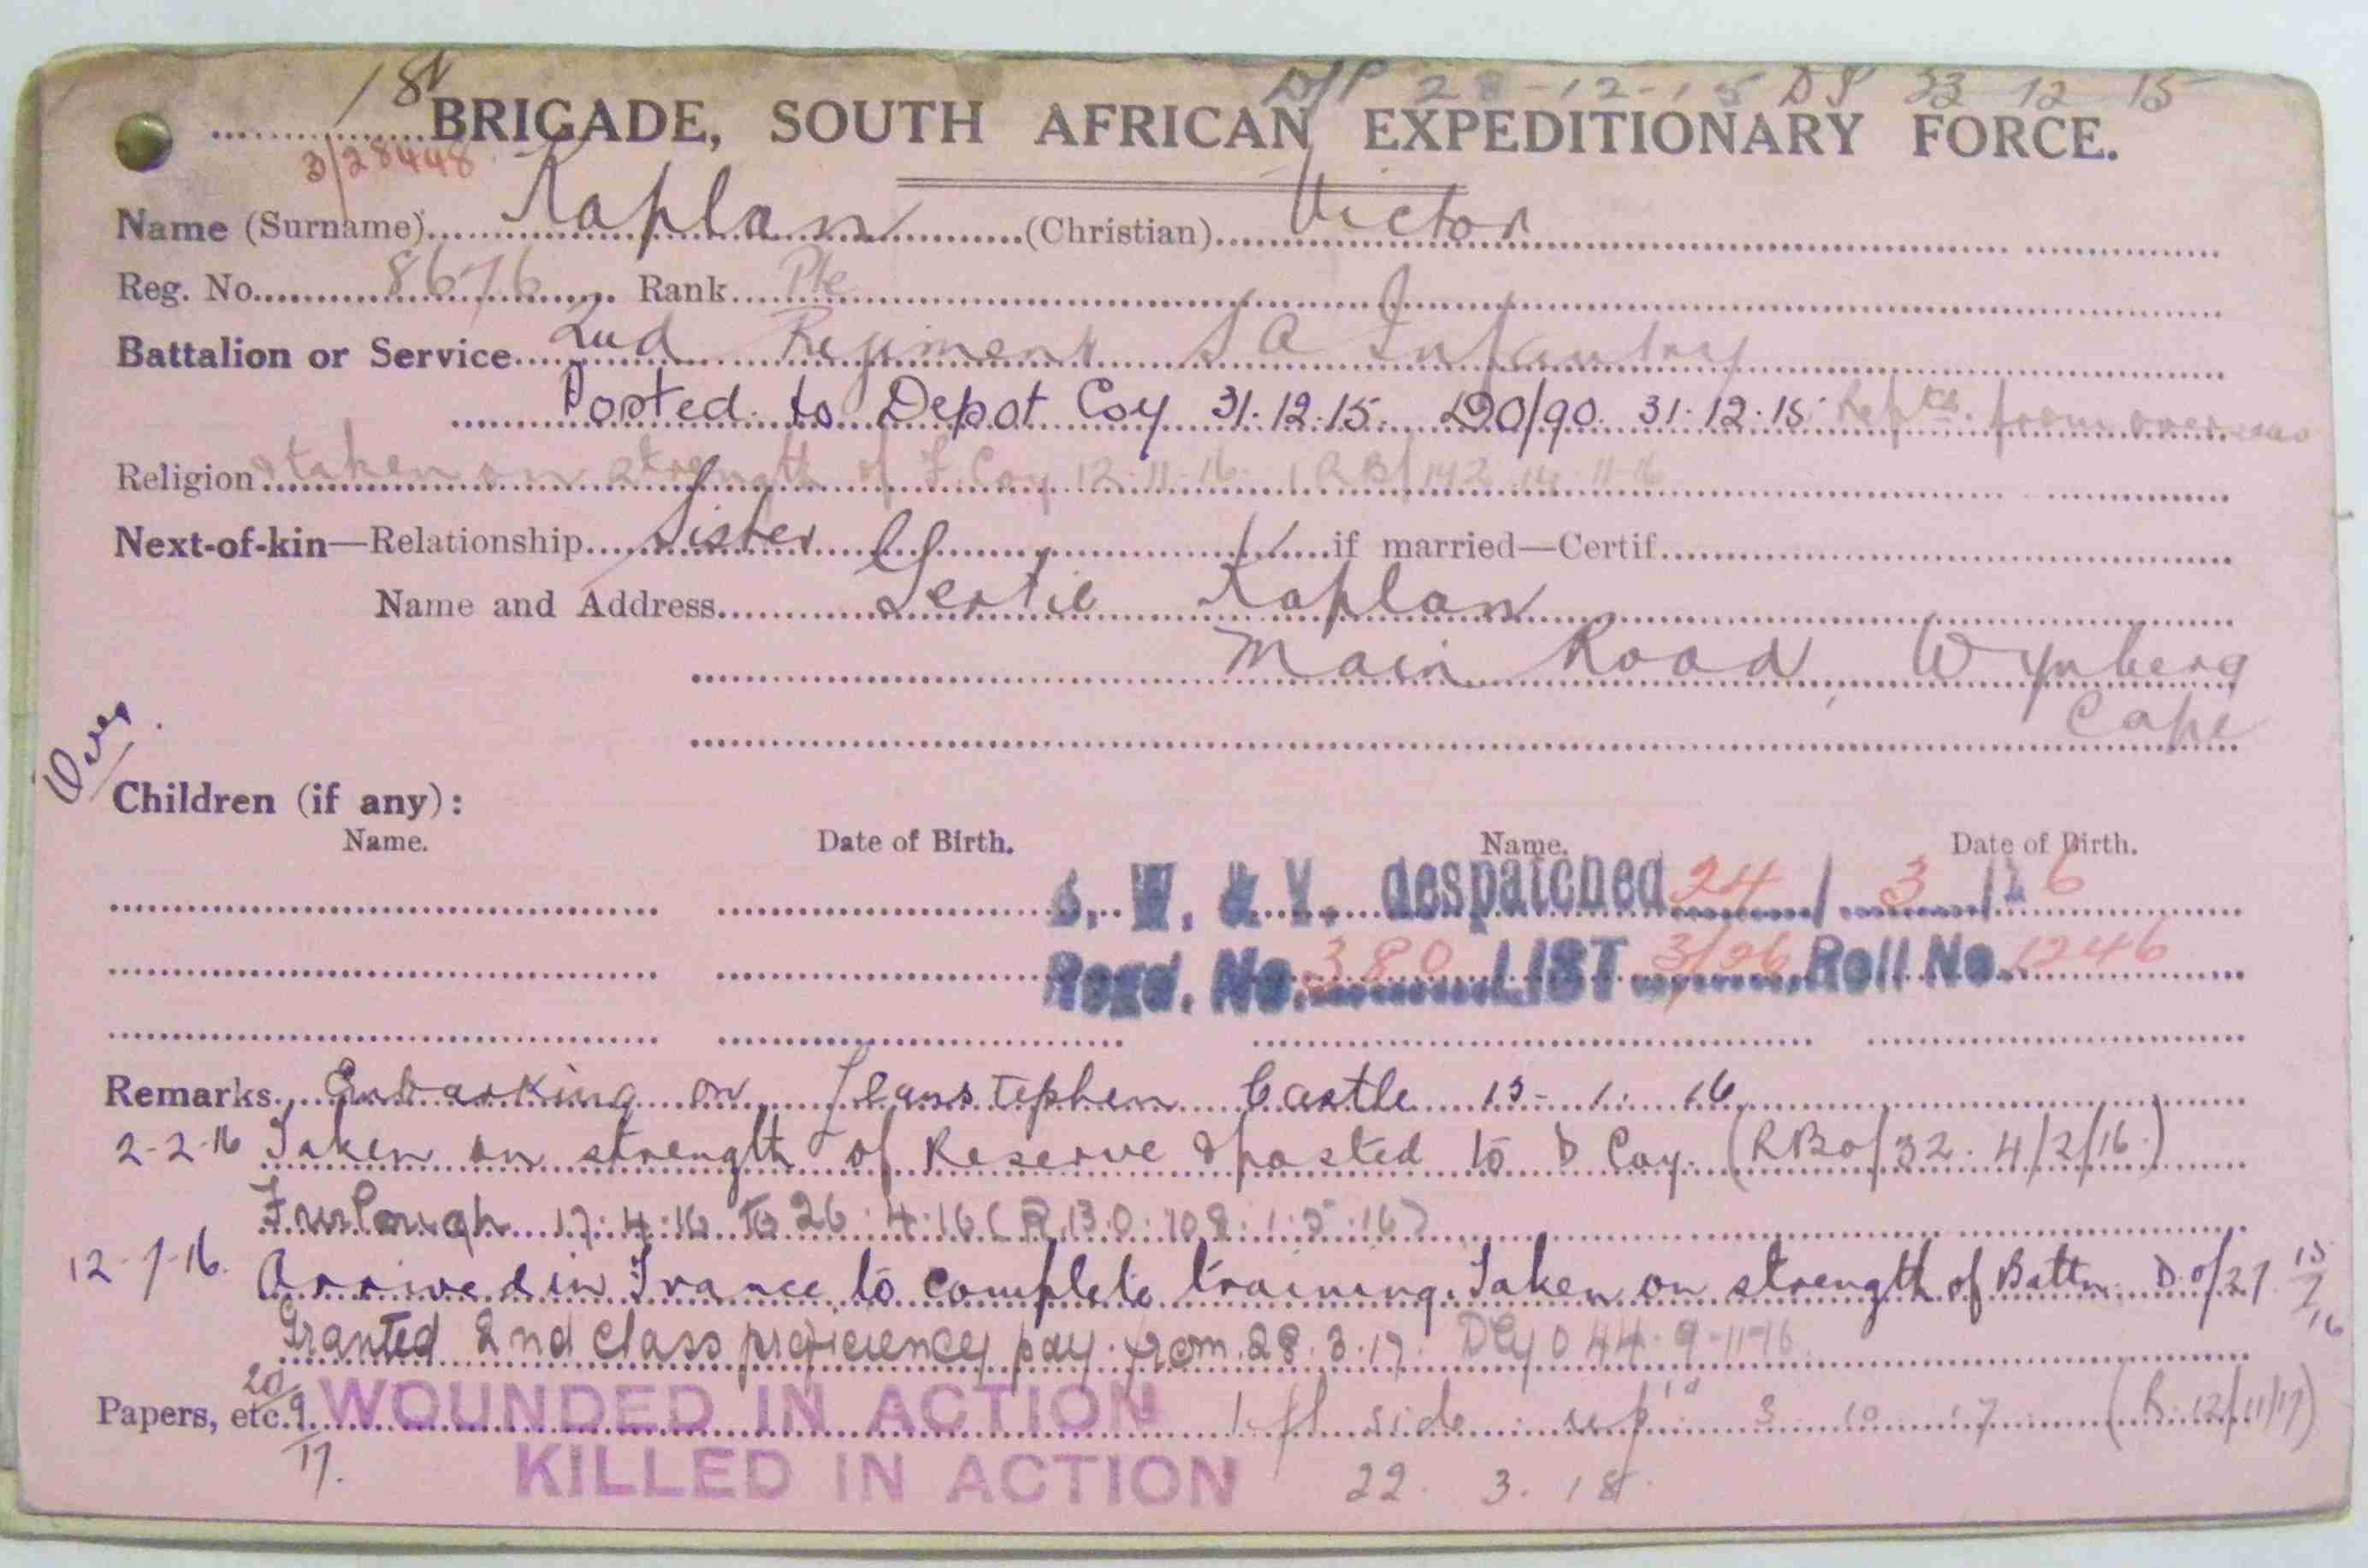 1st BRIGADE, SOUTH AFRICAN EXPEDITIONARY FORCE.
3/28448
Name (Surname) Kaplan (Christian) Victor
Reg. No. 8676 Rank Pte
Battalion or Service 2nd Regiment S A Infantry
Posted to Depot Coy 31.12.15. DO/90. 31.12.15 from overseas
Religion taken on strength of F. Coy 12.11.16.
Next-of-kin—Relationship Sister if married—Certif.
Name and Address Gertie Kaplan
Main Road, Wynberg
Cape
Over
Children (if any):
Name. Date of Birth. Name. Date of Birth.
despatched 24/3/16
Regd. No. 380 LIST 3/26 Roll No. 1246
Remarks Embarking on Llanstephen Castle 15-1-16
2-2-16 Taken on strength of Reserve & posted to D Coy. (RBo/32. 4/2/16.)
Furlough 17.4.16 to 26.4.16 (R.B.O. 108. 1.5.16)
12-7-16. Arrived in France to complete training. Taken on strength of Battn. D.o/27 15/7/16
Granted 2nd class proficiency pay from 28.3.17.
Papers, etc. 20/9/17. WOUNDED IN ACTION side 3 10 17 (R. 12/11/17)
KILLED IN ACTION 22. 3. 18.